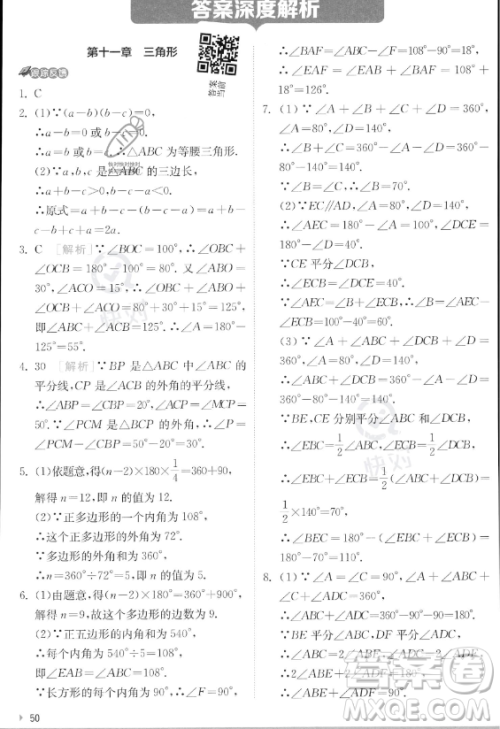 答案深度解析
第十一章 三角形
1. C
2. (1)∵(a-b)(b-c)=0,
∴a-b=0或b-c=0,
∴a=b或b=c,
∴△ABC为等腰三角形.
(2)∵a,b,c是△ABC的三边长,
∴a-b+c>0,b-c-a<0,
∴原式=a-b+c-(b-c-a)=a-b+c-b+c+a=2a.
3. C [解析]∵∠BOC=100°,∴∠OBC+
∠OCB=180°-100°=80°.又∠ABO=
30°,∠ACO=15°,∴∠ABO+∠ACO+
∠OBC+∠OCB=30°+15°+80°=125°,
即∠ABC+∠ACB=125°.∴∠A=180°-
(∠ABC+∠ACB)=180°-125°=55°.
4. 30 [解析]∵BP是△ABC中∠ABC的
平分线,CP是∠ACB的外角的平分线,
∴∠ABP=∠CBP=20°,∠ACP=∠PCM=
50°.∵∠PCM是△BCP的外角,∴∠P=
∠PCM-∠CBP=50°-20°=30°.
5. (1)依题意,得(n-2)×180×1/4=360+90,
解得n=12,即n的值为12.
(2)∵正多边形的一个内角为108°,
∴这个正多边形的一个外角为72°.
∵多边形的外角和为360°,
∴n=360°÷72°=5,即n的值为5.
6. (1)由题意,得(n-2)·180°-360°=900°,
解得n=9.故这个多边形的边数为9.
(2)∵正五边形的内角和为540°,
∴每个内角为540°÷5=108°,
∴∠EAB=108°.
∵长方形的每个内角为90°,∴∠EAF=90°,
50
∴∠BAF=∠EAB-∠EAF=108°-90°=
18°.
7. (1)∵∠A+∠B+∠C+∠D=360°,
∠A=80°,∠D=140°,
∴∠B+∠C=360°-∠A-∠D=140°.
∵∠B=∠C,∴∠B=70°.
(2)∵EC∥AD,∠D=140°,
∴∠DCE=180°-∠D=40°.
∵CE平分∠BCD,
∴∠DCB=2∠DCE=80°.
∵∠A+∠ABC+∠DCB+∠D=360°,
∴∠ABC=360°-80°-140°-80°=60°.
(3)∵∠A+∠ABC+∠DCB+∠D=360°,
∴∠ABC+∠DCB=360°-∠A-∠D=
360°-80°-140°=140°.
∵BE,CE分别平分∠ABC,∠DCB,
∴∠EBC=1/2∠ABC,∠ECB=1/2∠DCB,
∴∠EBC+∠ECB=1/2(∠ABC+∠DCB)=
1/2×140°=70°,
∴∠BEC=180°-(∠EBC+∠ECB)=
110°.
8. (1)∵∠A=∠C=90°,
∴∠ABC+∠ADC=360°-90°×2=180°.
∵BE平分∠ABC,DF平分∠ADC,
∴∠ABC=2∠ABE,∠ADC=2∠ADF,
答案圈
MXQE.COM